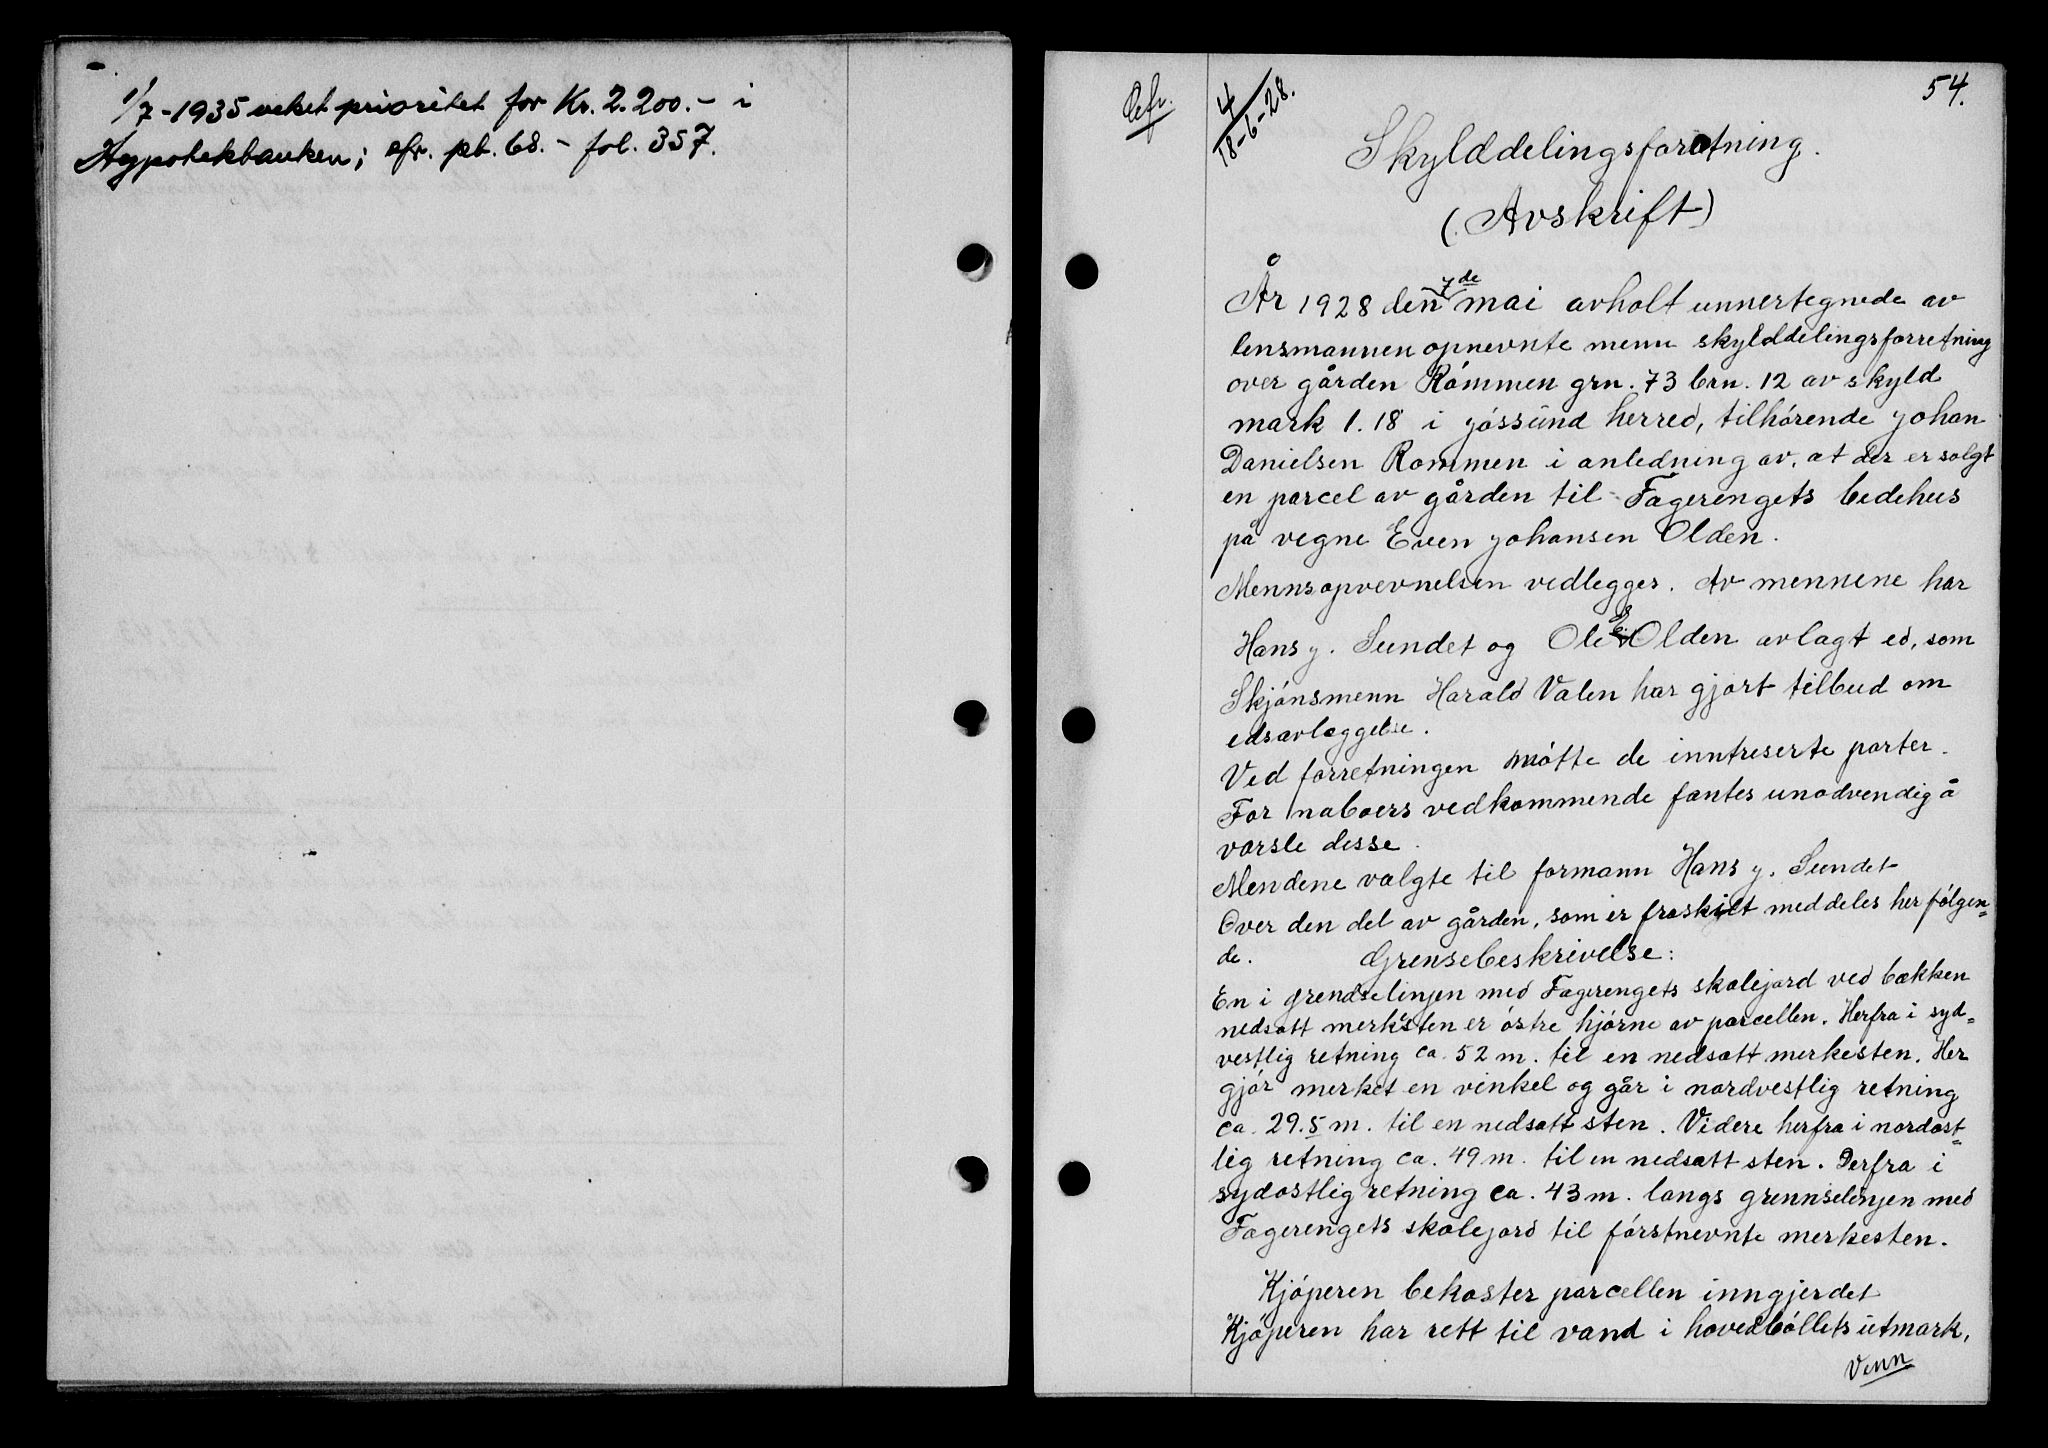 1/7-1935 veket prioritet for Kr. 2.200.- i
Hypotekbanken; cfr. pb. 68. - fol. 357.
54.
4
18-6-28.
Skylddelingsforretning.
(Avskrift)
År 1928 den 7de mai avholt unnertegnede av
lensmannen opnevnte menn skylddelingsforretning
over gården Rómmen grn. 73 brn. 12 av skyld
mark 1.18 i jóssund herred, tilhórende johan
Danielsen Rommen i anledning av, at der er solgt
en parcel av gården til Fagerengets bedehus
på vegne Even johansen Olden.
Mennsopnevnelsen vedlegges. Av mennene har
Hans j. Sundet og Ole Olden avlagt ed, som
Skjónsmenn Harald Valen har gjort tilbud om
edsavlæggelse.
Ved forretningen mótte de inntreserte parter.
For naboers vedkommende fantes unodvendig å
varsle disse.
Mendene valgte til formann Hans j. Sundet
Over den del av gården, som er fraskilt meddeles her fólgen=
de. Grensebeskrivelse:
En i grendselinjen med Fagerengets skolejord ved bækken
nedsatt merksten er óstre hjórne av parcellen. Herfra i syd=
vestlig retning ca. 52 m. til en nedsatt merkesten. Her
gjór merket en vinkel og går i nordvestlig retning
ca. 29.5 m. til en nedsatt sten. Videre herfra i nordost=
lig retning ca. 49 m. til en nedsatt sten. Derfra i
sydostlig retning ca. 43 m. langs grennselinjen med
Fagerengets skolejord til fórstnevnte merkesten.
Kjóperen bekoster parcellen inngjerdet
Kjóperen har rett til vand i hovedbóllets utmark,
Venn